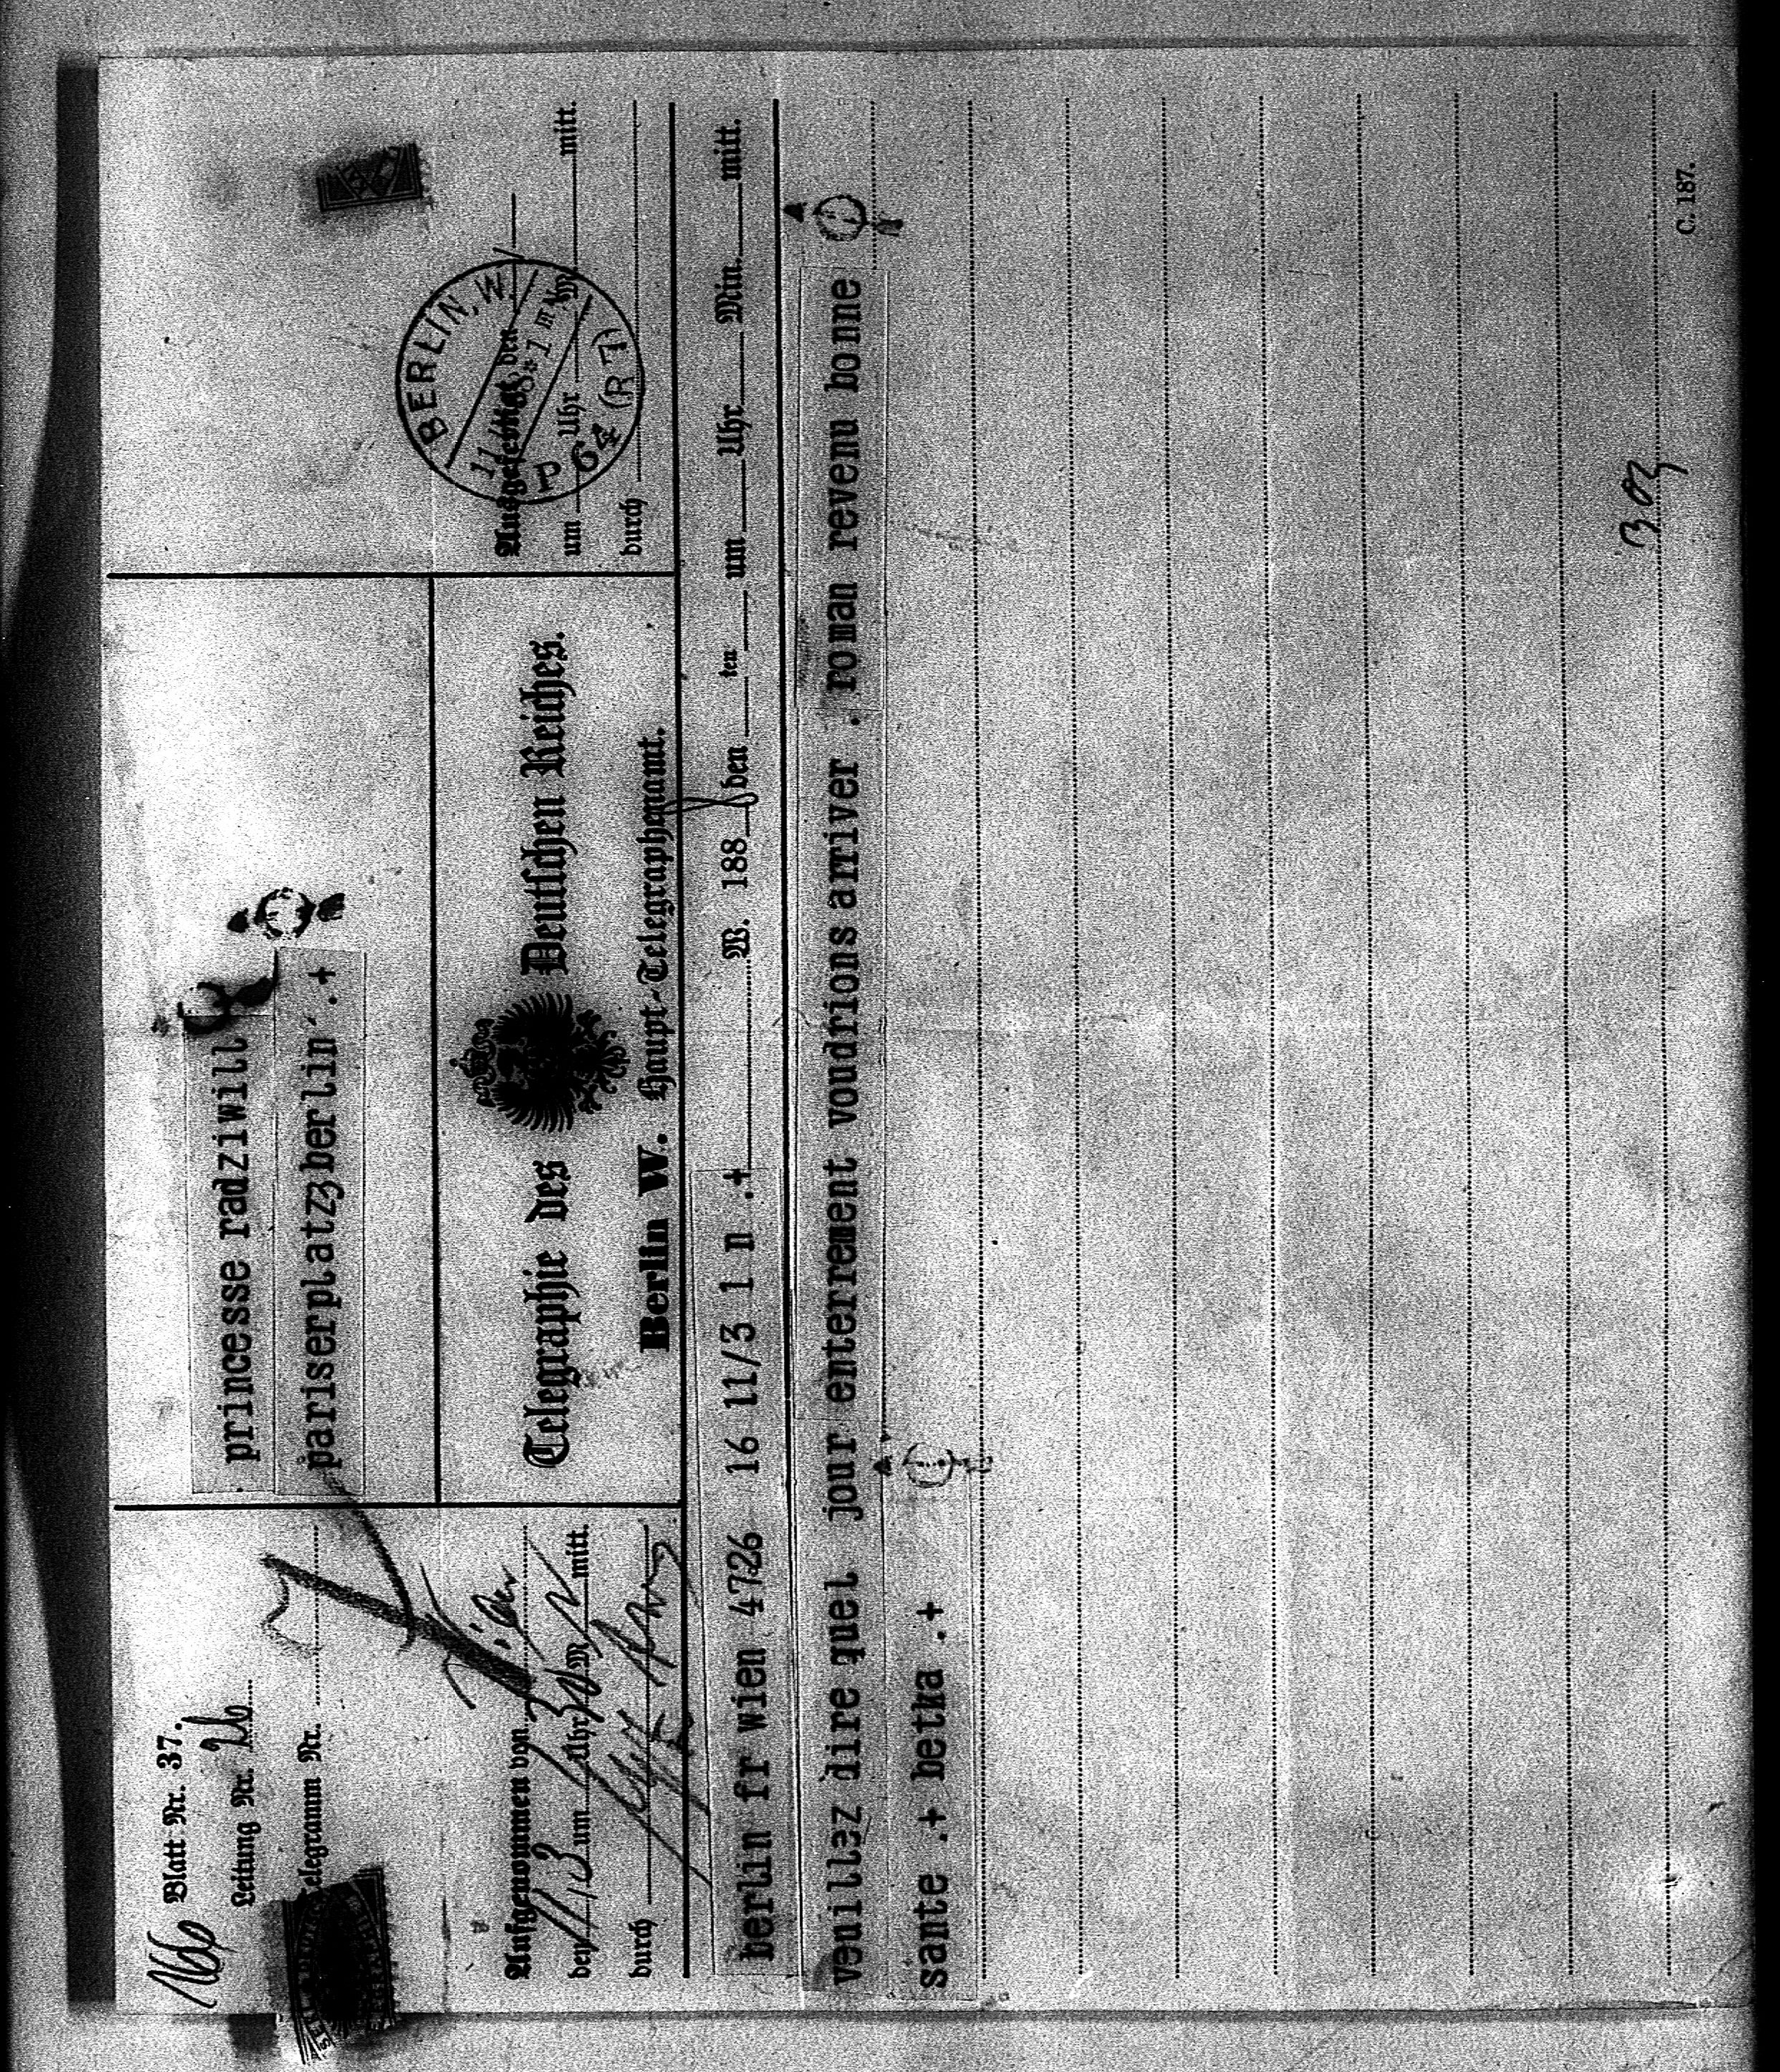 166 Blatt Nr. 37.
Leitung Nr. 26
Telegramm Nr.
princesse radziwill
pariserplatz3berlin .+
Aufgenommen von Wien
den 11/3 um 1 Uhr 30 M N mitt.
durch
Telegraphie des Deutschen Reiches.
Berlin W. Haupt-Telegraphenamt.
Ausgefertigt den
um Uhr M mitt.
durch
BERLIN, W.
11/3 88 1
P 64 (R 7)
berlin fr wien 4726 16 11/3 1 n .+ M. 188 8 den ten um Uhr Min. mitt.
veuillez dire quel jour enterrement voudrions arriver . roman revenu bonne
sante .+ betka .+
303
C. 187.